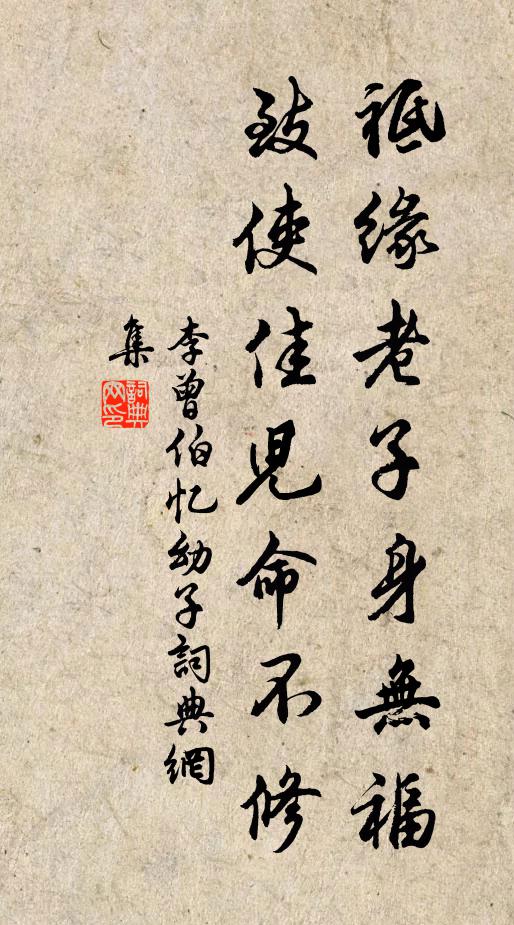 祗缘老子身無福
致使佳兒命不修
李曾伯忆幼子詞典網
集
詞典
网印